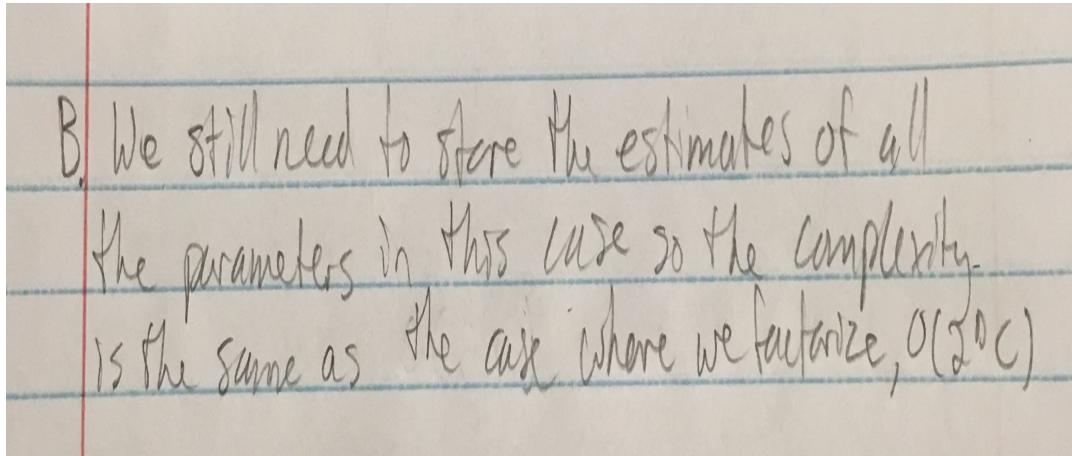 B. We still need to store the estimates of all
the parameters in this case so the complexity
is the same as the case where we factorize, O(2^D C)